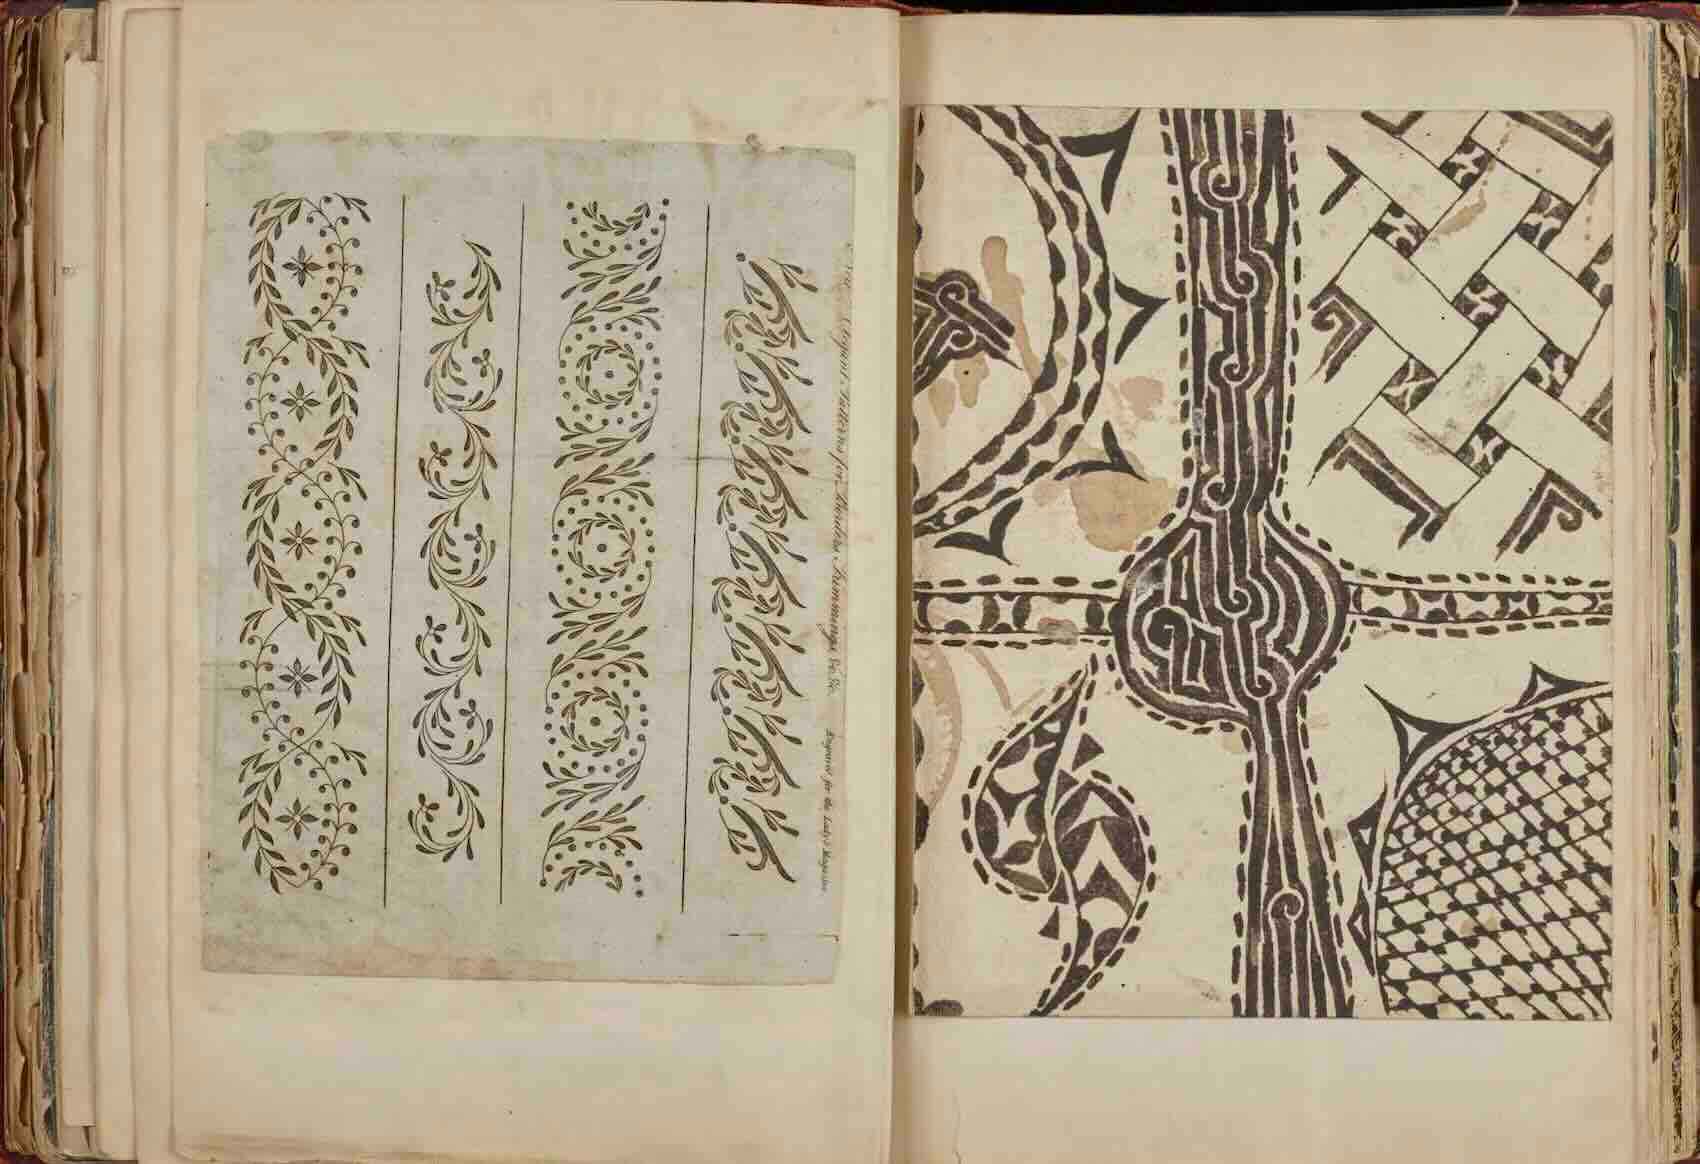 New Elegant Patterns for Borders, Trimmings, &c. &c.
Engraved for the Lady's Magazine.